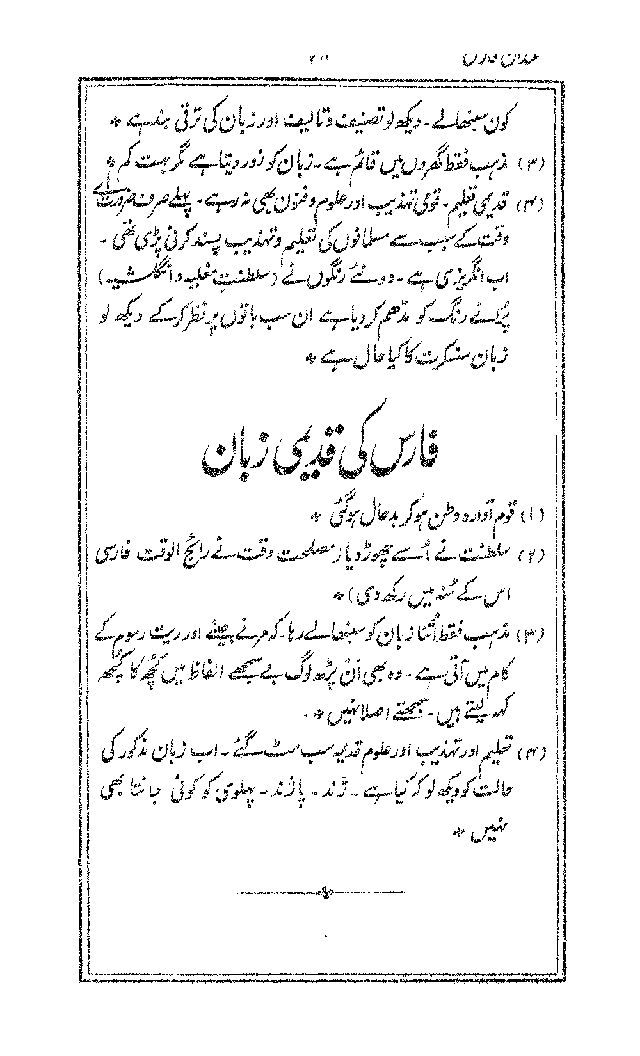 کون سنبھالے۔ دیکھ لو تصنیف و تالیف اور زبان کی ترقی بند ہے *
(۳) مذہب فقط گھروں میں قائم ہے۔ زبان کو زور دیتا ہے مگر بہت کم *
(۴) قدیمی تعلیم۔ قومی تہذیب اور علوم و فنون بھی نہ رہے۔ پہلے صرف ضرورت
وقت کے سبب سے مسلمانوں کی تعلیم و تہذیب پسند کرنی پڑی تھی۔
اب انگریزی ہے۔ دو نئے رنگوں نے (سلطنتِ مغلیہ و انگلشیہ)
پرانے رنگ کو مدھم کر دیا ہے ان سب باتوں پر نظر کر کے دیکھ لو
زبان سنسکرت کا کیا حال ہے *
فارس کی قدیمی زبان
(۱) قوم آوارہ وطن ہو کر بدحال ہو گئی *
(۲) سلطنت نے اُسے چھوڑ دیا (مصلحت وقت نے رائج الوقت فارسی
اس کے مُنہ میں رکھ دی) *
(۳) مذہب فقط اُتنا زبان کو سنبھالے رہا۔ کہ مرنے جینے اور ریت رسوم کے
کام میں آتی ہے۔ وہ بھی اَن پڑھ لوگ بے سمجھے الفاظ میں کچھ کا کچھ
کہہ لیتے ہیں۔ سمجھتے اصلا نہیں *
(۴) تعلیم اور تہذیب اور علوم قدیمہ سب مٹ گئے۔ اب زبان مذکور کی
حالت کو دیکھ لو کہ کیا ہے۔ ژند۔ پاژند۔ پہلوی کو کوئی جانتا بھی
نہیں *